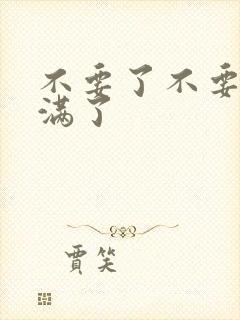 不要了不要
满了
賈笑